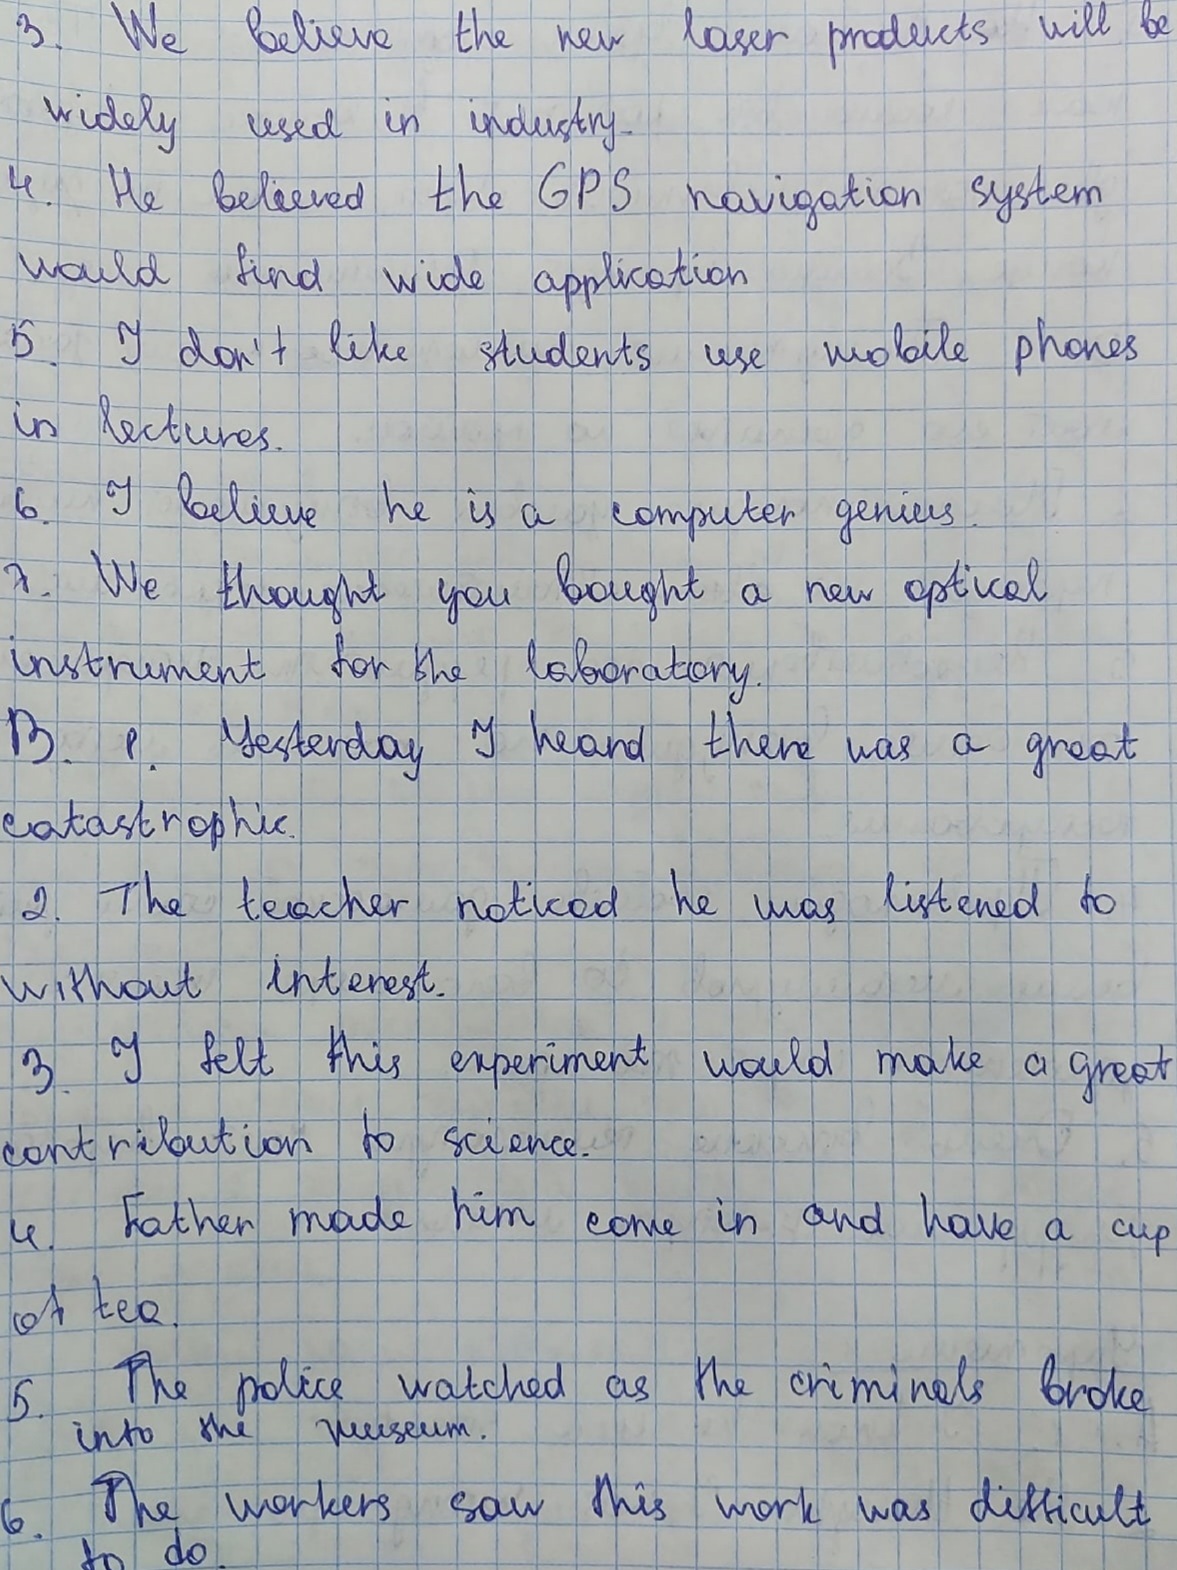 3. We believe the new laser products will be
widely used in industry.
4. He believed the GPS navigation system
would find wide application
5. I don't like students use mobile phones
in lectures.
6. I believe he is a computer genius.
7. We thought you bought a new optical
instrument for the laboratory.
B. 1. Yesterday I heard there was a great
catastrophic.
2. The teacher noticed he was listened to
without interest.
3. I felt this experiment would make a great
contribution to science.
4. Father made him come in and have a cup
of tea.
5. The police watched as the criminals broke
into the museum.
6. The workers saw this work was difficult
to do.